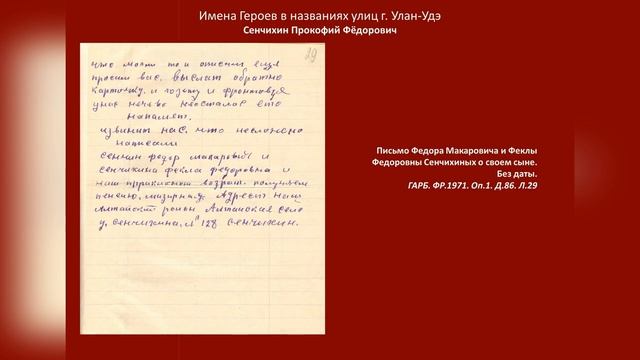 Имена Героев в названиях улиц г. Улан-Удэ
Сенчихин Прокофий Фёдорович
29
что могли то и описали ещё
просим вас. выслат обратно
карточку. и газету и фронтовая
у нас нечево неосталос ето
напамят.
извенит нас. что несложно
написали
сенчихин федор макаровий и
сенчихина фекла федоровна и
наш приклонай возраст. получаем
пенсию. мизирная. Адресат наш
Алтайский район Алтайская село
у. сенчихина. № 128 сенчихин.
Письмо Федора Макаровича и Феклы
Федоровны Сенчихиных о своем сыне.
Без даты.
ГАРБ. ФР.1971. Оп.1. Д.86. Л.29